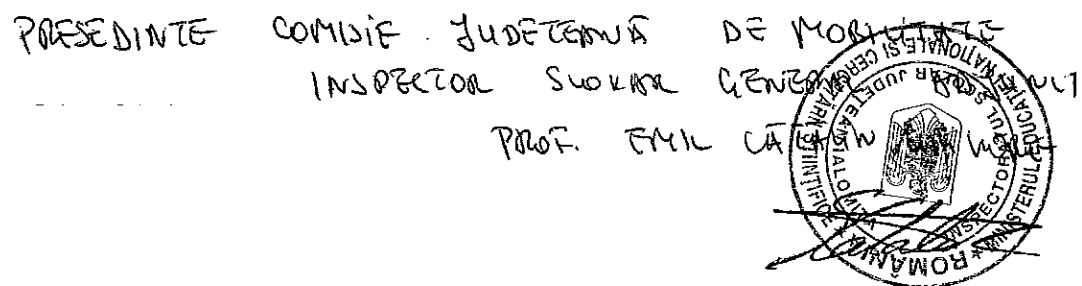 PRESEDINTE COMISIE JUDETEANĂ DE MOBILITATE
INSPECTOR SCOLAR GENERAL
PROF. EMIL CĂTĂLIN
MINISTERUL EDUCAȚIEI NAȚIONALE ȘI CERCETĂRII ȘTIINȚIFICE
INSPECTORATUL ȘCOLAR JUDEȚEAN IALOMIȚA
ROMÂNIA